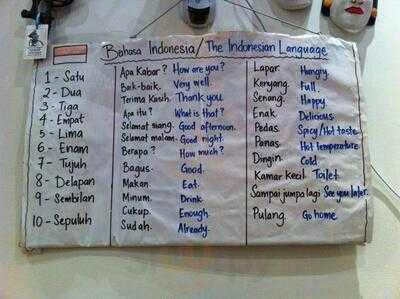 Bahasa Indonesia / The Indonesian Language
1 - Satu
2 - Dua
3 - Tiga
4 - Empat
5 - Lima
6 - Enam
7 - Tujuh
8 - Delapan
9 - Sembilan
10 - Sepuluh
Apa Kabar? How are you?
Baik-baik. Very well.
Terima Kasih. Thank you
Apa itu? What is that?
Selamat siang. Good afternoon.
Selamat malam. Good night.
Berapa? How much?
Bagus. Good.
Makan Eat.
Minum. Drink
Cukup. Enough.
Sudah. Already.
Lapar. Hungry.
Kenyang. Full.
Senang. Happy.
Enak. Delicious
Pedas. Spicy/Hot taste
Panas. Hot temperature.
Dingin. Cold
Kamar Kecil. Toilet.
Sampai jumpa lagi See you later.
Pulang. Go home.